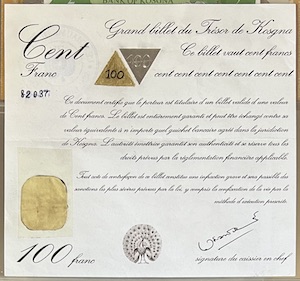 BANK OF KOSGNA
Cent
Franc
Grand billet du Trésor de Kosgna
Ce billet vaut cent francs
100
100
cent cent cent cent cent cent cent
82037
Ce document certifie que le porteur est titulaire d'un billet valide d'une valeur
de Cent francs. Le billet est entièrement garanti et peut être échangé contre sa
valeur équivalente à n'importe quel guichet bancaire agréé dans la juridiction
de Kosgna. L'autorité émettrice garantit son authenticité et se réserve tous les
droits prévus par la réglementation financière applicable.
Tout acte de contrefaçon de ce billet constitue une infraction grave et sera passible des
sanctions les plus sévères prévues par la loi, y compris la confiscation de la vie par la
méthode d'exécution prescrite.
100 franc
signature du caissier en chef